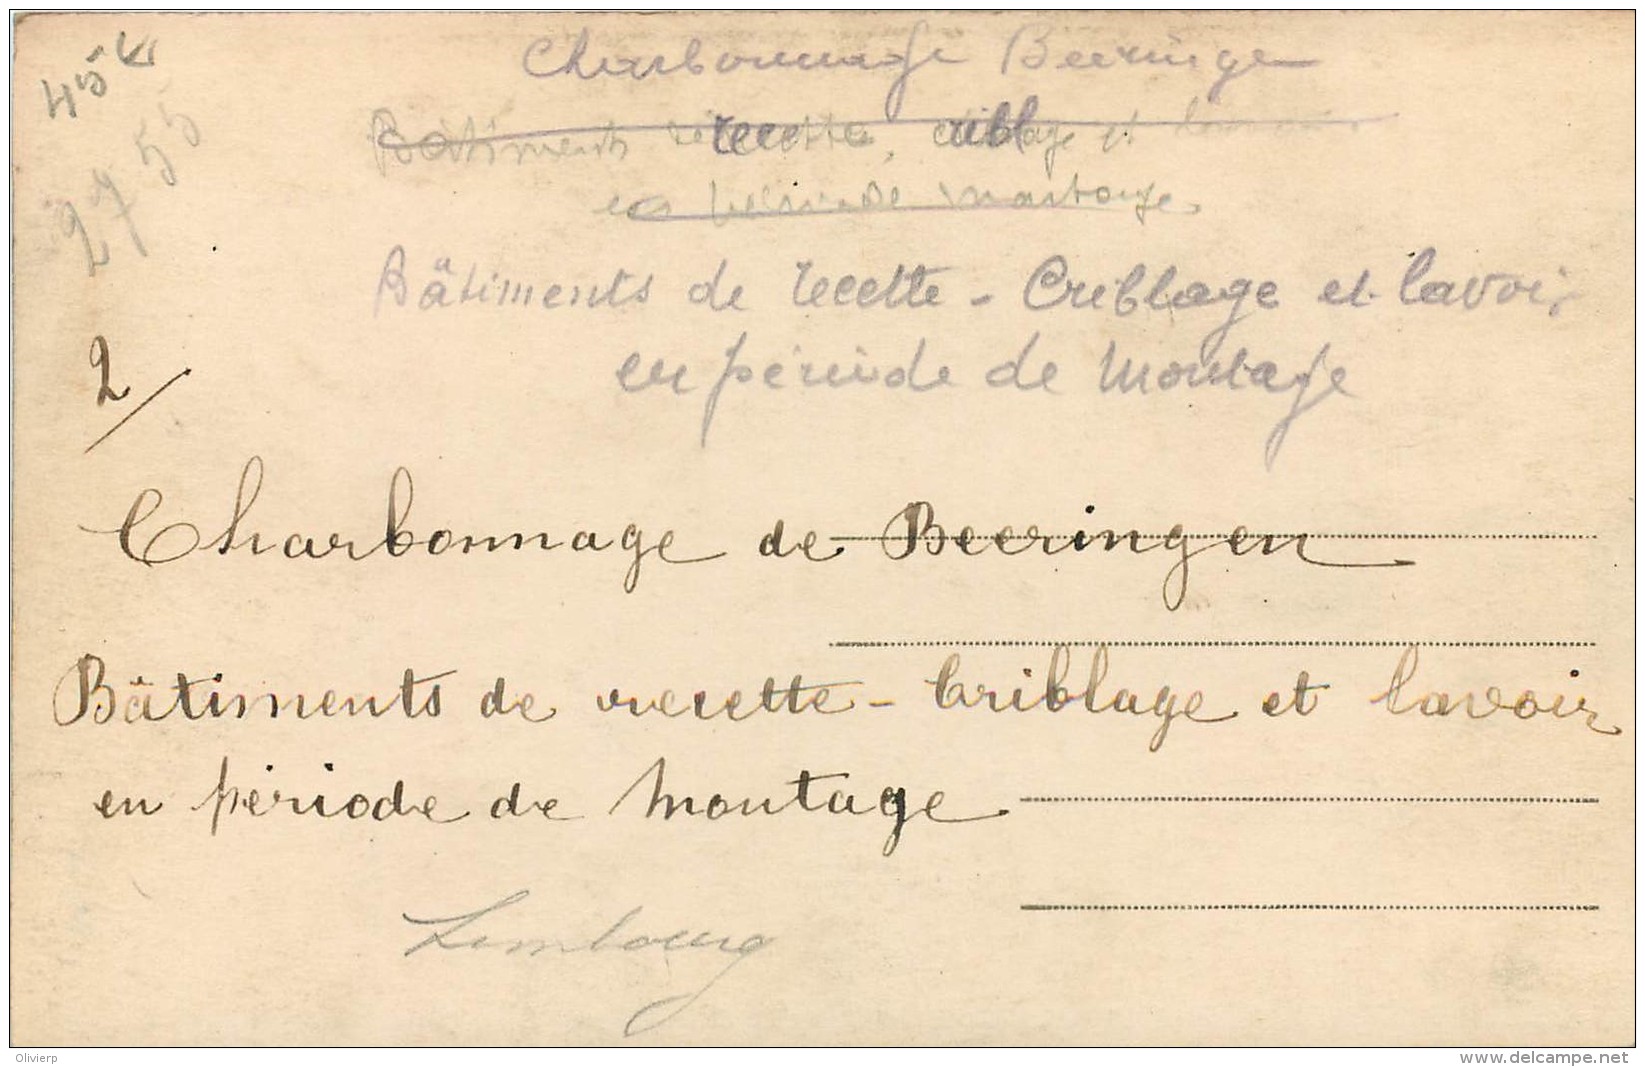 45
27 55
Charbonnage Beeringen
Bâtiments recette, criblage et
en période montage
Bâtiments de recette - Criblage et lavoir
en période de montage
2/
Charbonnage de Beeringen
Bâtiments de recette - Criblage et lavoir
en période de montage
Limbourg
Olivierp
www.delcampe.net